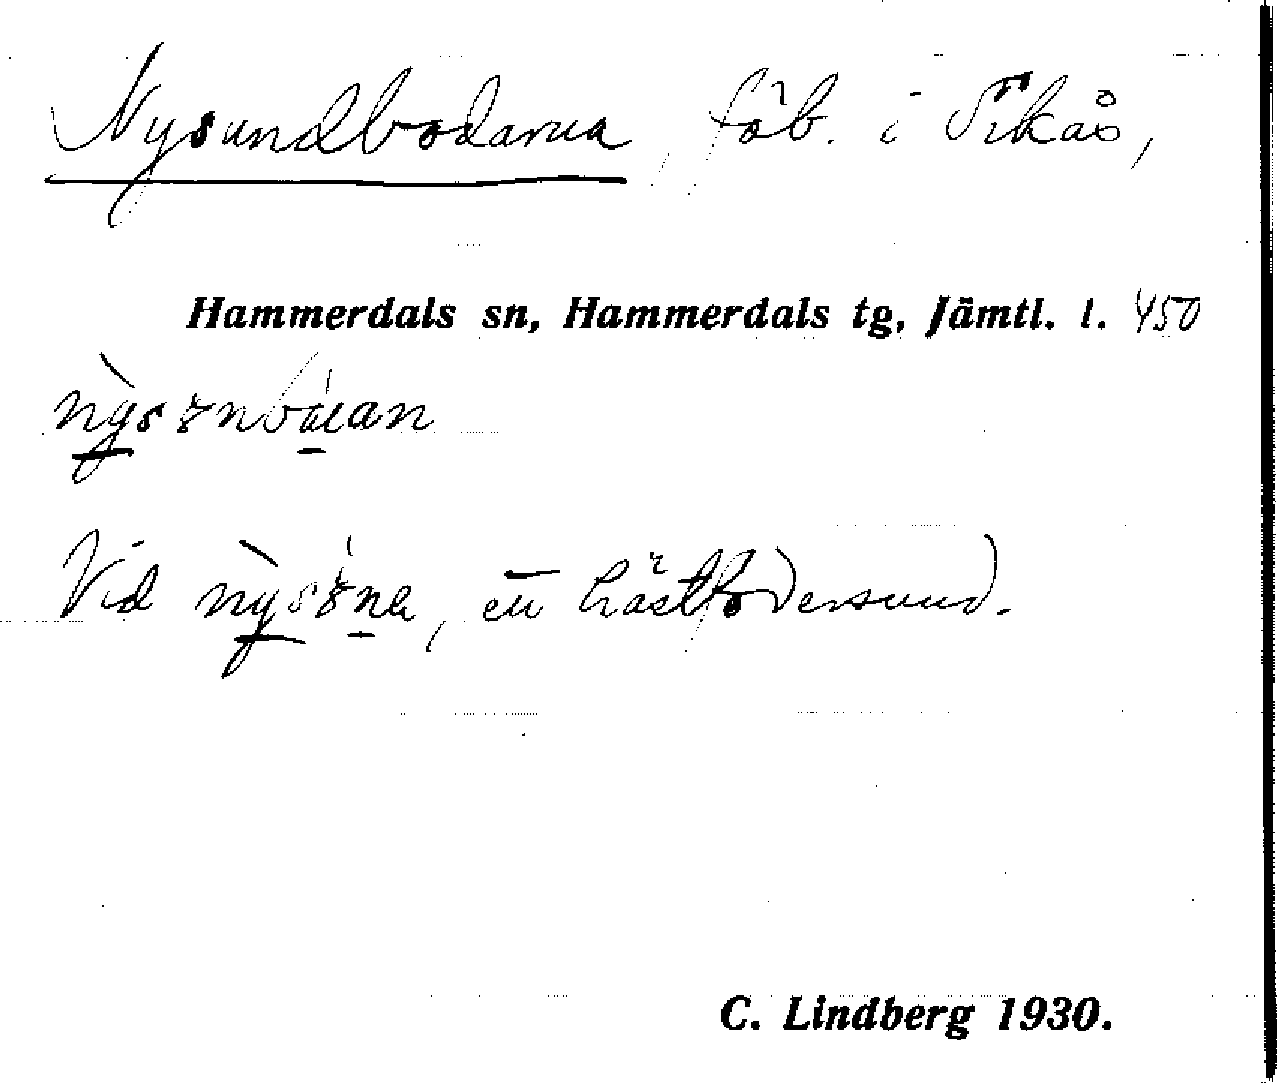 Nysundbodarna, fäb. i Sikås,
Hammerdals sn, Hammerdals tg, Jämtl. l. 450
Vid en hästfodersund.
C. Lindberg 1930.